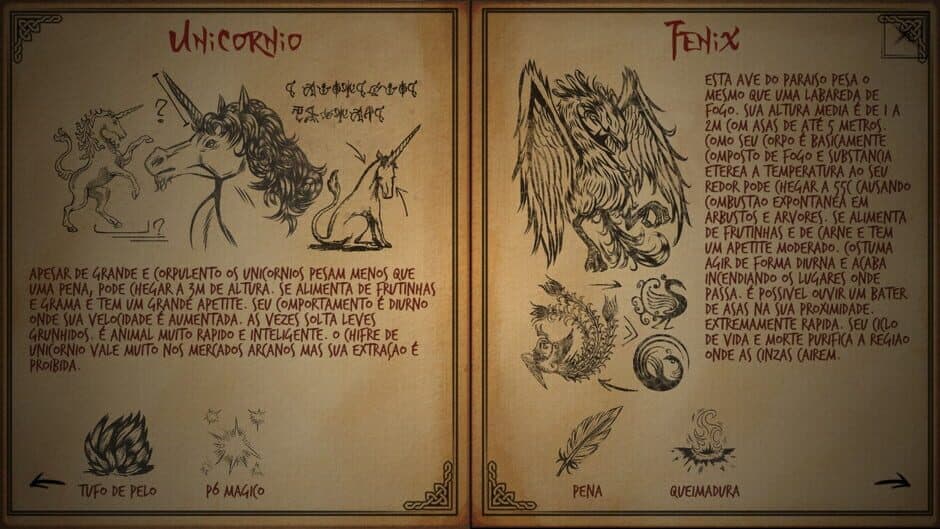 Unicornio
APESAR DE GRANDE E CORPULENTO OS UNICORNIOS PESAM MENOS QUE
UMA PENA, PODE CHEGAR A 3M DE ALTURA. SE ALIMENTA DE FRUTINHAS
E GRAMA E TEM UM GRANDE APETITE. SEU COMPORTAMENTO É DIURNO
ONDE SUA VELOCIDADE É AUMENTADA. AS VEZES SOLTA LEVES
GRUNHIDOS. É ANIMAL MUITO RAPIDO E INTELIGENTE. O CHIFRE DE
UNICORNIO VALE MUITO NOS MERCADOS ARCANOS MAS SUA EXTRAÇÃO É
PROIBIDA.
TUFO DE PELO
PÓ MAGICO
Fenix
ESTA AVE DO PARAISO PESA O
MESMO QUE UMA LABAREDA DE
FOGO. SUA ALTURA MEDIA É DE 1 A
2M COM ASAS DE ATÉ 5 METROS.
COMO SEU CORPO É BASICAMENTE
COMPOSTO DE FOGO E SUBSTANCIA
ETEREA A TEMPERATURA AO SEU
REDOR PODE CHEGAR A 55C CAUSANDO
COMBUSTAO EXPONTANEA EM
ARBUSTOS E ARVORES. SE ALIMENTA
DE FRUTINHAS E DE CARNE E TEM
UM APETITE MODERADO. COSTUMA
AGIR DE FORMA DIURNA E ACABA
INCENDIANDO OS LUGARES ONDE
PASSA. É POSSIVEL OUVIR UM BATER
DE ASAS NA SUA PROXIMIDADE.
EXTREMAMENTE RAPIDA. SEU CICLO
DE VIDA E MORTE PURIFICA A REGIAO
ONDE AS CINZAS CAIREM.
PENA
QUEIMADURA